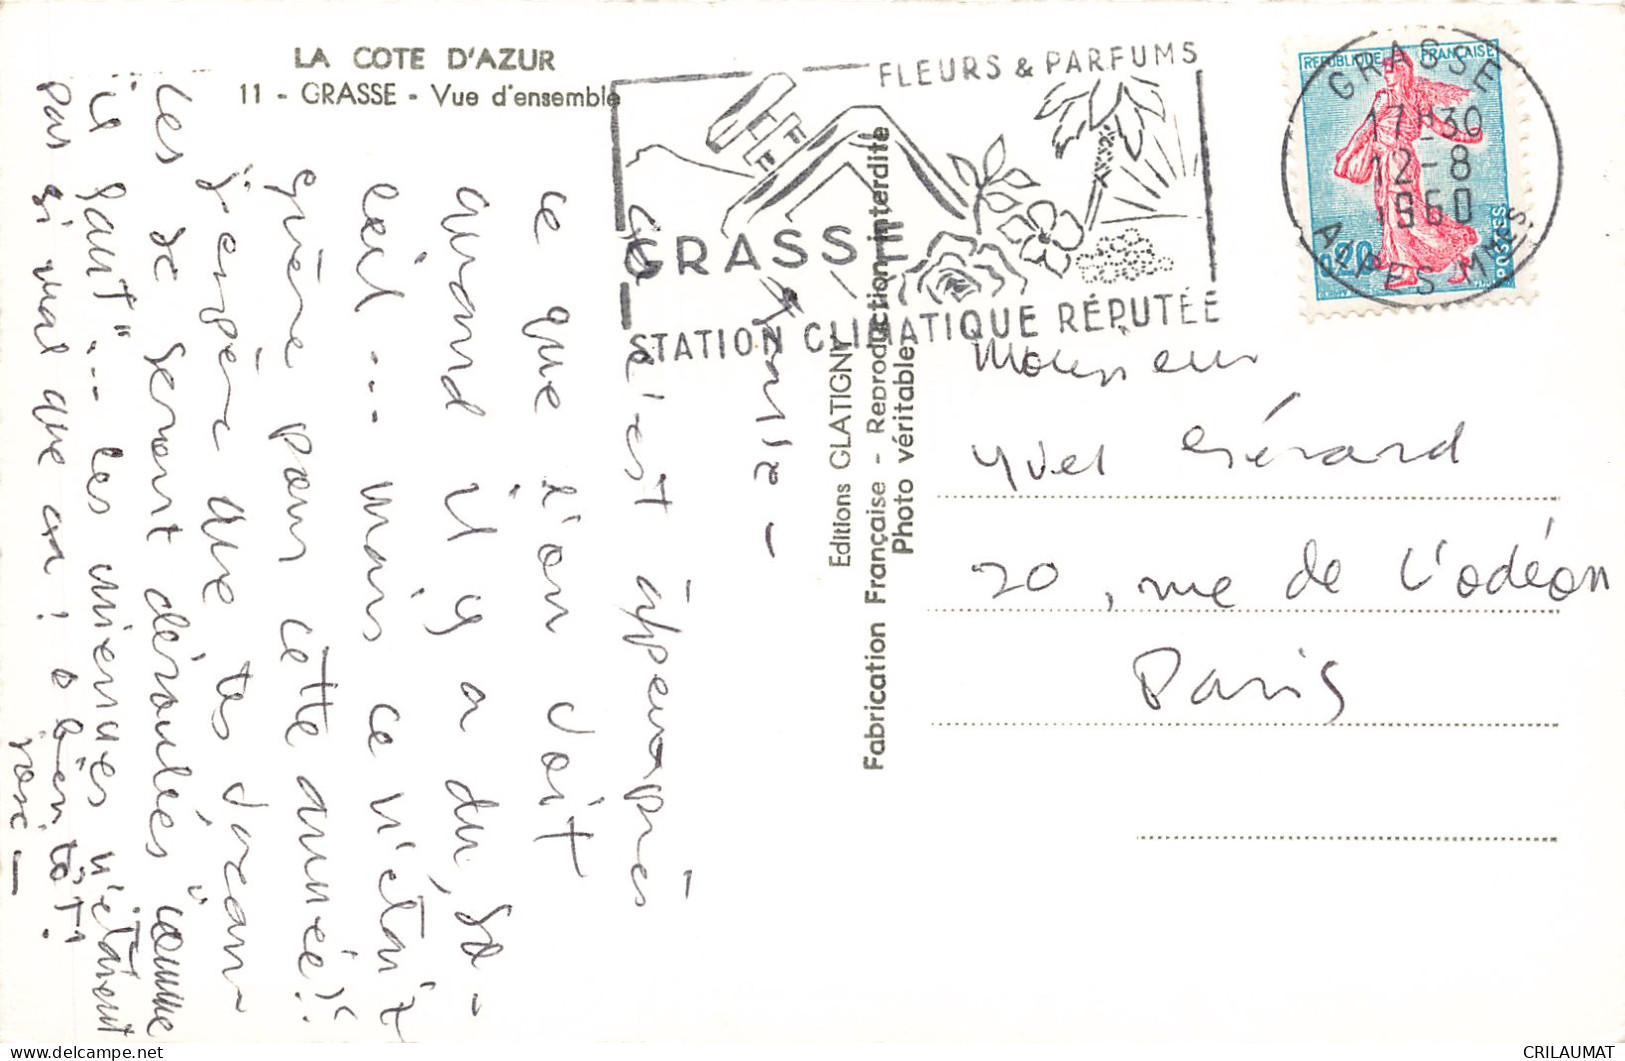 LA COTE D'AZUR
11 - GRASSE - Vue d'ensemble
FLEURS & PARFUMS
GRASSE
STATION CLIMATIQUE RÉPUTÉE
REPUBLIQUE FRANÇAISE
0,20
POSTES
GRASSE
17H30
12-8
1960
ALPES MMES
Editions GLATIGNY
Fabrication Française - Reproduction interdite
Photo véritable
Grasse -
Ce n'est à peu près
ce que l'on voit
quand il y a du so-
leil ... mais ce n'était
guère pour cette année!
j'espère que tes vacan-
ces se seront déroulées "comme
il faut" ... les miennes n'étaient
pas si mal que ça! à bientôt!
Monsieur
Yves Gérard
20, rue de l'odéon
Paris
CRILAUMAT